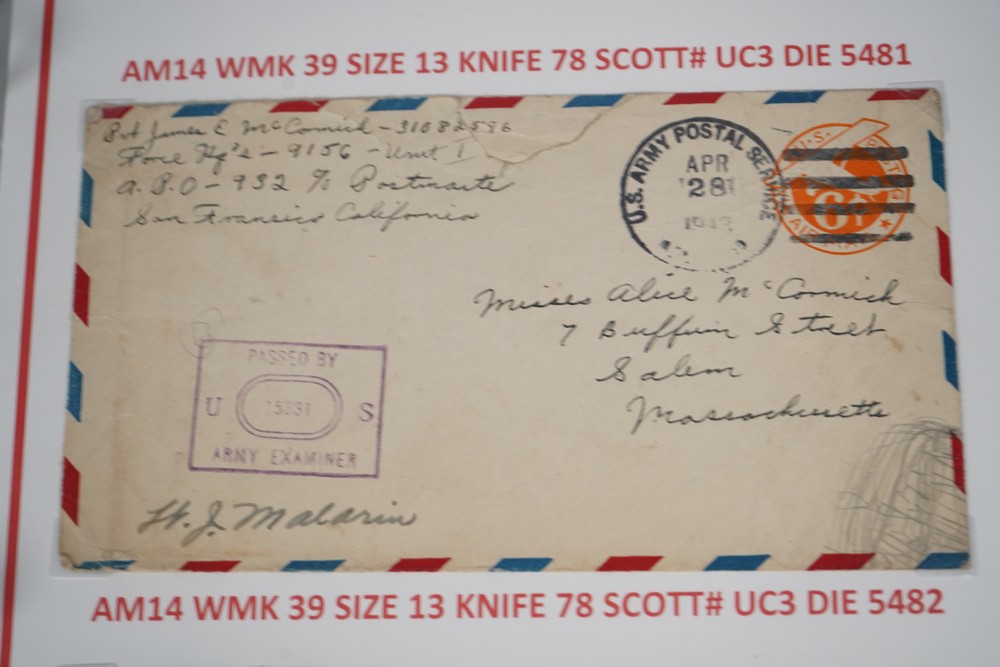 AM14 WMK 39 SIZE 13 KNIFE 78 SCOTT# UC3 DIE 5481
Pvt James E McCormick - 31082596
Force Hq's - 9156 - Unit I
A.P.O - 932 % Postmaste
San Francisco California
U.S. ARMY POSTAL SERVICE
APR
28
1943
U.S.
6¢
AIR MAIL
Misses Alice McCormick
7 Buffum Street
Salem
Massachusetts
PASSED BY
U 15331 S
ARMY EXAMINER
Lt. J. Malarin
AM14 WMK 39 SIZE 13 KNIFE 78 SCOTT# UC3 DIE 5482